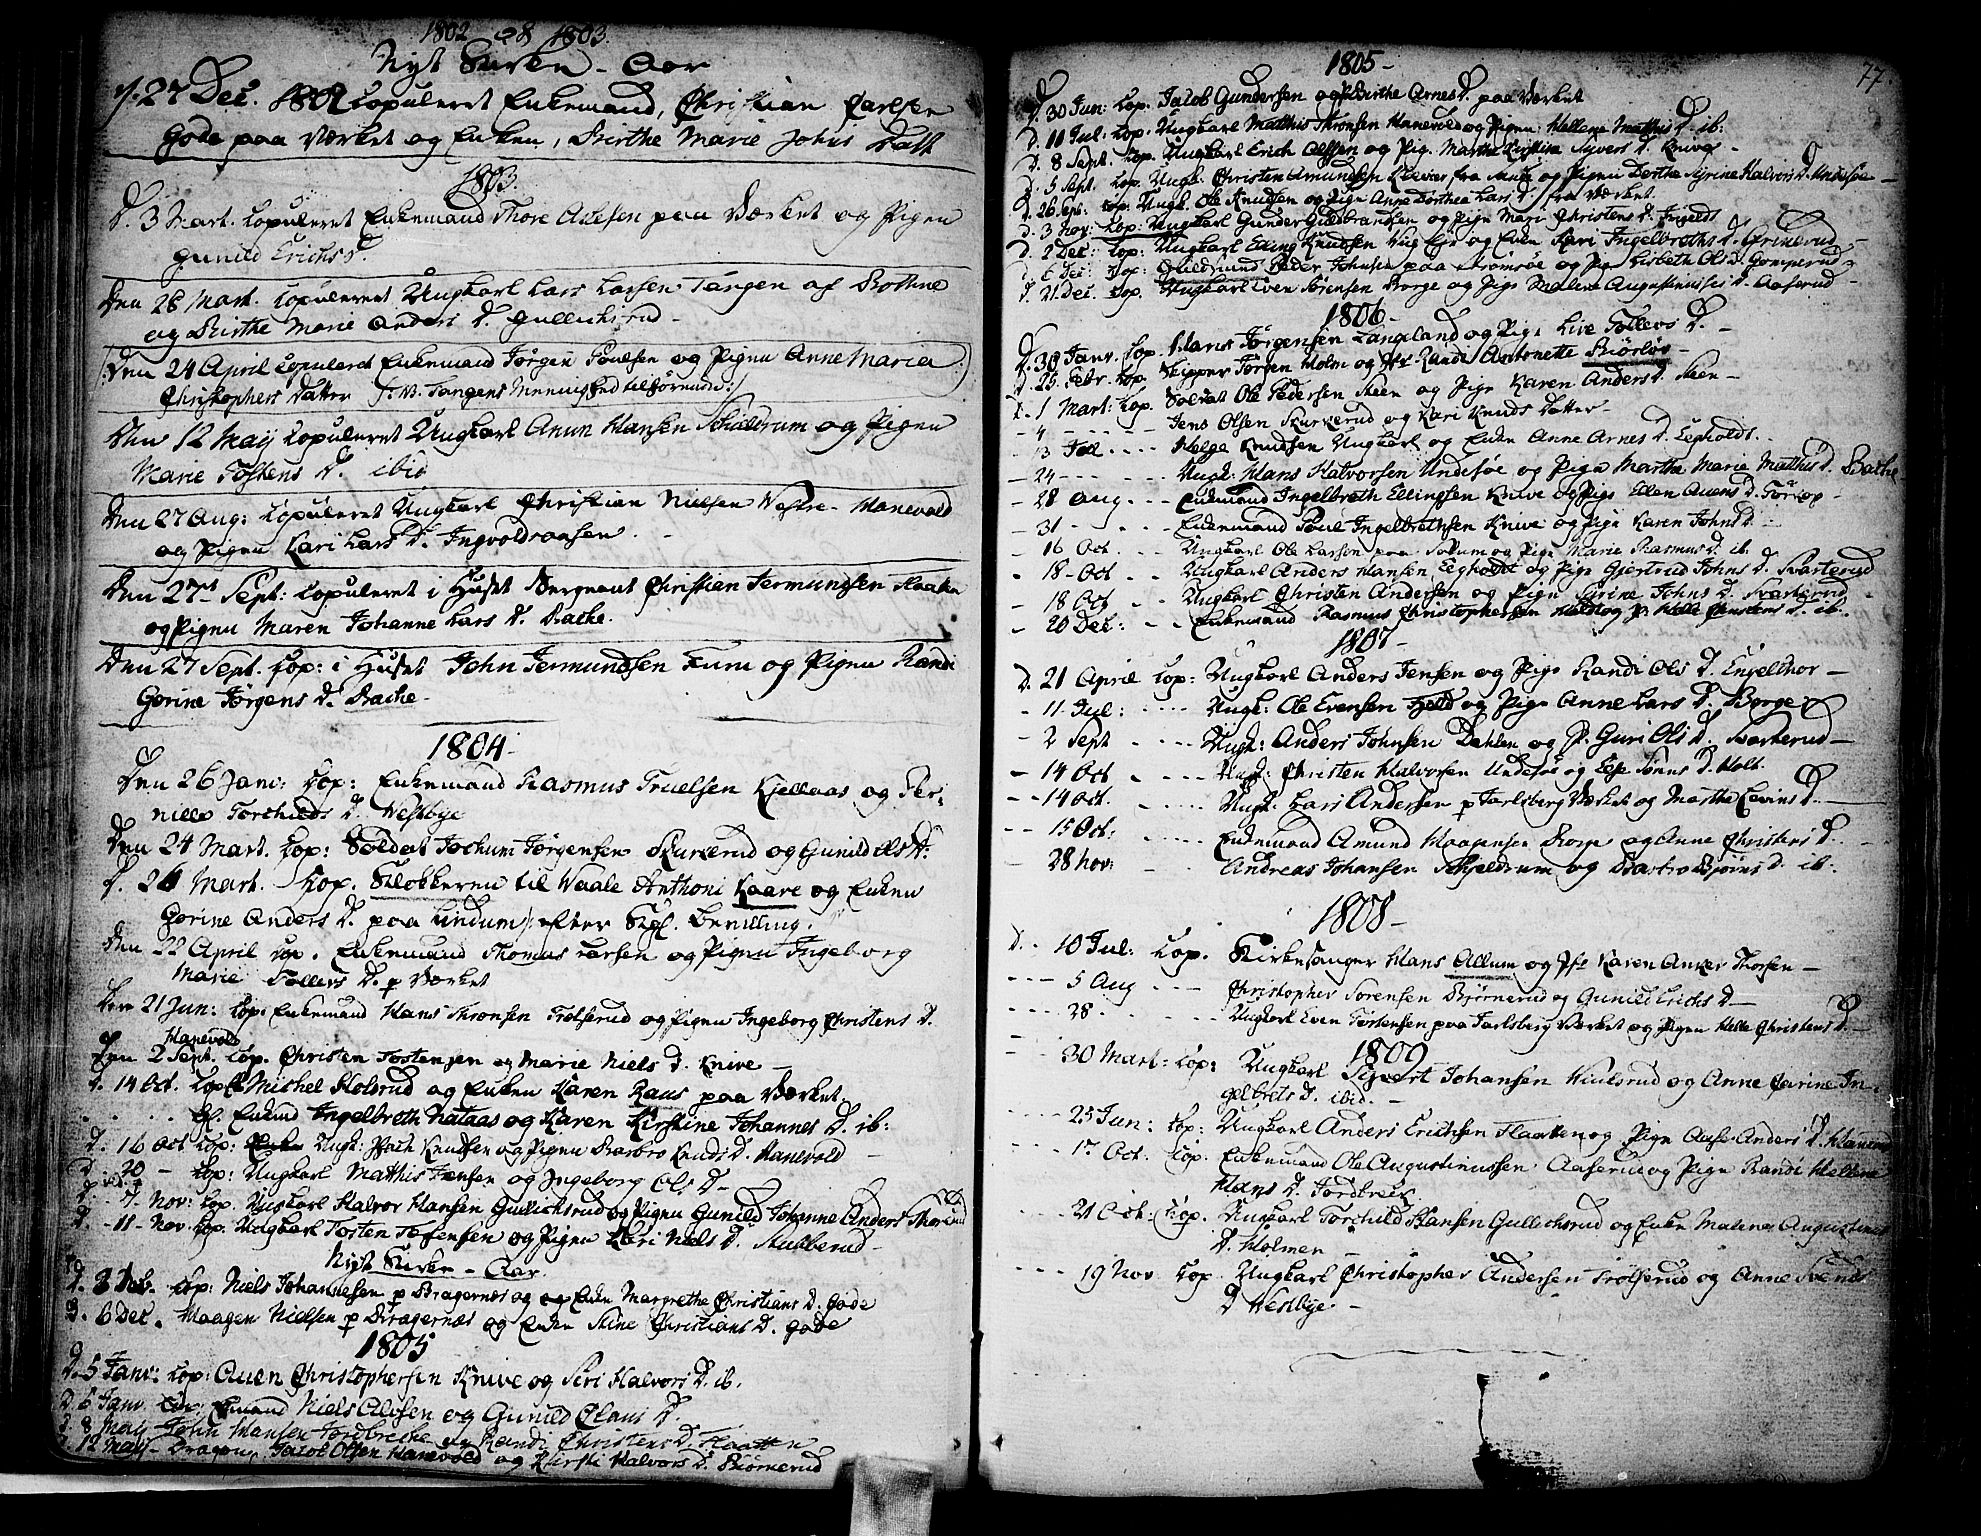 1802 og 1803.
Nyt Kirke-Aar
d. 27 Dec. 1802 Copuleret Enkemand, Christian Carlsen
Gode paa Værket og Enken, Birthe Marie Johns Datt
1803.
D. 3 Mart. Copuleret Enkemand Thore Adesen paa Værket og Pigen
Gunild Erichs D.
Den 28 Mart. Copuleret Ungkarl Lars Larsen Tangen af Bothne
og Birthe Marie Anders D. Gullichsrud -
(:Den 24 April Copuleret Enkemand Jørgen Poulsen og Pigen Anne Maria
Christophers Datter
Den 12 May Copuleret Ungkarl Amun Hansen Schieldrum og Pigen
Marie Tostens D. ibid
Den 27 Aug: Copuleret Ungkarl Christian Nielsen Westre-Manevold
og Pigen Kari Lars D. Ingvoldraasen.
Den 27de Sept: Copuleret i Huset Sergeant Christian Jermundsen Haaken
og Pigen Maren Johanne Lars D. Bache.
Den 27 Sept. Cop: i Huset John Jermundsen Fum og Pigen Randi
Gorine Jørgens D. Bache -
1804.
Den 26 Jan: Cop: Enkemand Rasmus Truelsen Kjellaas og Per-
nille Torchilds D. Westbye
Den 24 Mart. Cop: Soldat Jochum Jørgensen Skurkerud og Gunild Ols D.
D. 26 Mart. Cop. Klokkeren til Waale Anthoni Kaare og Enken
Gorine Anders D. paa Lindum /: efter Kgl. Bevilling.
Den 22 April Cop. Enkemand Thomas Larsen og Pigen Ingeborg
Marie Tollefs D. p Værket
Den 21 Jun: Cop: Enkemand Hans Thronsen Trolserud og Pigen Ingeborg Christens D.
Manevold
Den 2 Sept. Cop. Christen Tostensen og Marie Niels D. Knive -
D. 14 Oct. Cop. Michel Holsrud og Enken Karen Raus paa Værket.
Enkmd Ingelbreth Nataas og Karen Kirstine Johannes D. ib:
D. 16 Oct Cop: Ungk: Knudsen og Pigen Barbro Knuds D. Manevold -
D. 20 - Cop: Ungkarl Matthis Jensen og Ingeborg Ols D -
D. 7. Nov: Cop. Ungkarl Halvor Hansen Gullichsrud og Pigen Gunild Johanne Anders
D. 11 - Nov. Cop. Ungkarl Tosten Tostensen og Pigen Kari Niels D. Stubberud -
Nyt Kirke-Aar.
D. 2 Dec. Cop: Niels Johannesen p Bragernæs og Enken Margrethe Christians D. Gode
D. 6 Dec. Haagen Nielsen p Bragernæs og Enken Stine Christians D. Gode
1805
D. 5 Janv: Cop: Auen Christophersen Knive og Siri Halvors D. ib.
D. 6 Janv. Cop. Enkemand Niels Olesen og Gunild Olaus D.
D. 8 May John Hansen Jordbreche og Randi Christens D. Haatten
D. 12 May - Dragon Jacob Olsen Manevold og Kirsti Halvors D. Biørnerud
77.
1805 -
D. 30 Jun: Cop. Jacob Gundersen og P Birthe Arnes D. paa Værket
D. 11 Jul: Cop: Ungkarl Matthis Thronsen Manevold og Pigen Hellene Matthis D. ib:
D. 8 Sept. Cop. Ungkarl Erich Olssen og Pig. Marthe Kirstine Syvers D. Knive -
D. 5 Sept. Cop. Ungk. Christen Amundsen Klevier fra Ande og Pigen Dorthe Syrine Halvors D. Undesøe -
D. 26 Sept: Cop: Ungk. Ole Knudsen og Pigen Anne Dorthea Lars D fra Værket.
D. 3 Nov: Cop: Ungkarl Gunder Guldbrandsen og Pige Mari Christens D. Ingelds
D. 2 Dec: Cop: Ungkarl Elling Knudsen og Enken Kari Ingelbreths D. Grinerud -
D. 6 Dec: Cop: Guldsmed Peder Johnsen paa Strømsøe og Pige Lisbeth Ols D. Gomperud -
D. 21 Dec. Cop. Ungkarl Even Sørensen Borge og Pige Malene Augustinuses D. Aaserud -
1806 -
D. 30 Janv. Cop. Hans Jørgensen Langeland og Pige Live Tollevs D. -
D. 25 Febr. Cop. Skipper Jørgen Holm og Jfr Randi Antonette Biørløv -
D. 1 Mart: Cop. Soldat Ole Pedersen Steen og Pige Karen Anders D. Steen -
- 4 - - - - - Jens Olsen Skurkerud og Kari Knuds Datter -
- 13 Jul - - - - Helge Knudsen Ungkarl og Enken Anne Arnes D. Legholdt -
- 24 - - - - - Ungk. Hans Halvorsen Undesøe og Pige Marthe Marie Matthis D. Bache
- 28 Aug - - - Enkemand Ingelbreth Ellingsen Knive og Pige Ellen Auens D. Torkop -
- 31 - - - - - Enkemand Poul Ingelbrethsen Knive og Pige Karen Johns D. -
- 16 Oct. - - Ungkarl Ole Larsen paa Solum og Pige Marie Rasmus D. ib
- 18 - Oct - - Ungkarl Anders Hansen Legholdt og Pige Gjertrud Johns D. Svarterud
- 18 Oct - - Ungkarl Christen Andersen og Pigen Syrine Johns D. Svarterud -
- 20 Dec: - - Enkemand Rasmus Christophersen Holt og P. Helle Christens D. ib:
1807 -
D. 21 April Cop: Ungkarl Anders Jensen og Pige Randi Ols D. Engelthor -
- 11 Jul: - - - - Ungk: Ole Evensen Hold og Pige Anne Lars D. Borge
- 2 Sept - - - - Ungk: Anders Johnsen Dahlen og P. Guri Ols D. Svarterud -
- 14 Oct - - - - Ungk: Christen Halvorsen Undesøe og Leje Jønns D. Holt
- - 14 Oct. - - - - Ungk: Lars Andersen p Jarlsberg Værket og Marthe Levins D. -
- - 15 Oct: - - - - Enkemand Amund Haagensen Borge og Anne Christens D. -
- - 28 Nov: - - Andreas Johansen Schjeldrum og Barbro Bjørns D. ib:
1808 -
D. - 10 Jul: Cop. Kirkesanger Hans Allum og Jfr Karen Anker Thorsen -
- - - 5 Aug - - - Christopher Sørensen Bjørnerud og Gunild Erichs D -
- - - - 28 - - - - Ungkarl Even Torstensen paa Jarlsberg Værket og Pigen Helle Christens D. -
1809
- - - 30 Mart: Cop: Ungkarl Sivert Johansen Wiulsrud og Anne Carine In-
gelbrets D. ibid. -
- - - - 25 Jun: Cop: Ungkarl Anders Erichsen Haatten og Pige Aase Anders D.
- - - - 1 Oct. Cop. Enkemand Ole Augustinussen Aaserud og Pige Randi Hellene
Hans D. Jordbrek
- - - - 21 Oct. Cop. Ungkarl Torchild Hansen Gullichsrud og Enken Malene Augustinus
D. Holmen -
- - - - 19 Nov. Cop. Ungkarl Christopher Andersen Trolserud og Anne Svends
D Westbye -